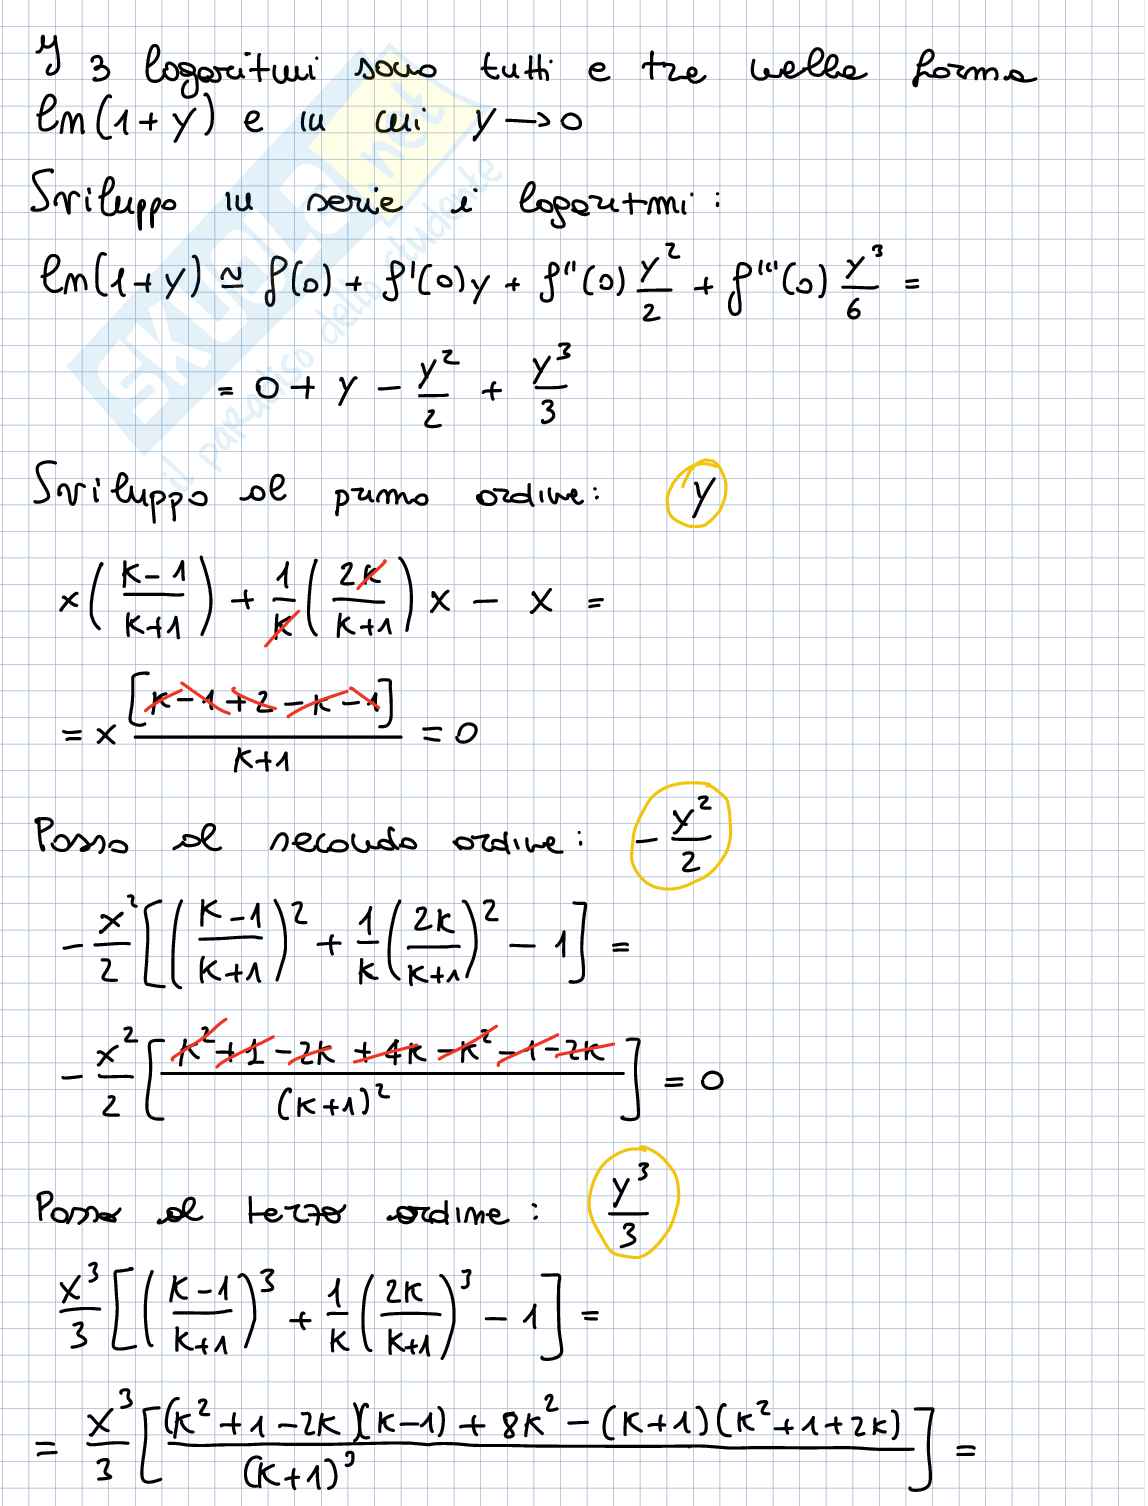 I 3 logaritmi sono tutti e tre nella forma
ln(1+y) e in cui y→0
Sviluppo in serie i logaritmi:
ln(1+y) ≃ f(0) + f'(0)y + f''(0) y²/2 + f'''(0) y³/6 =
= 0 + y - y²/2 + y³/3
Sviluppo al primo ordine: y
x((K-1)/(K+1)) + 1/K (2K/(K+1)) x - x =
= x [K-1+2-K-1]/(K+1) = 0
Passo al secondo ordine: - x²/2
- x²/2 [((K-1)/(K+1))² + 1/K (2K/(K+1))² - 1] =
- x²/2 [(K²+1-2K+4K-K²-1-2K)/(K+1)²] = 0
Passo al terzo ordine: y³/3
x³/3 [((K-1)/(K+1))³ + 1/K (2K/(K+1))³ - 1] =
= x³/3 [((K²+1-2K)(K-1)+8K²-(K+1)(K²+1+2K))/(K+1)³] =
SKUOLA.net
il paradiso dello studente